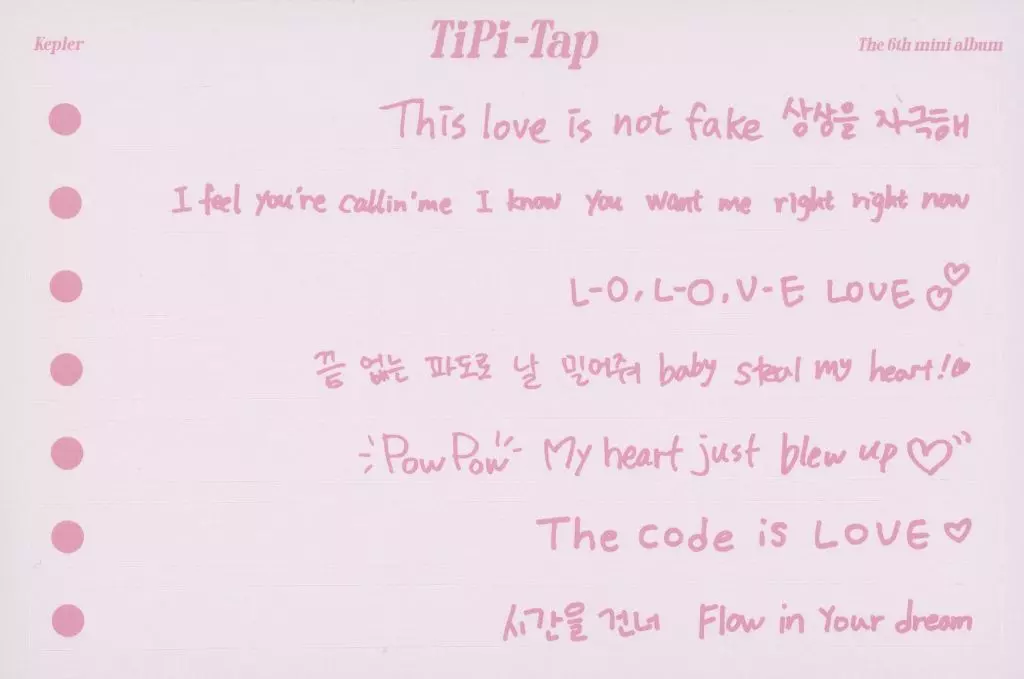 Kepler TiPi-Tap The 6th mini album
This love is not fake 상상을 자극해
I feel you're callin' me I know you want me right right now
L-O, L-O, V-E LOVE
끝 없는 파도로 날 밀어줘 baby steal my heart!
PowPow My heart just blew up
The code is LOVE
시간을 건너 Flow in Your dream